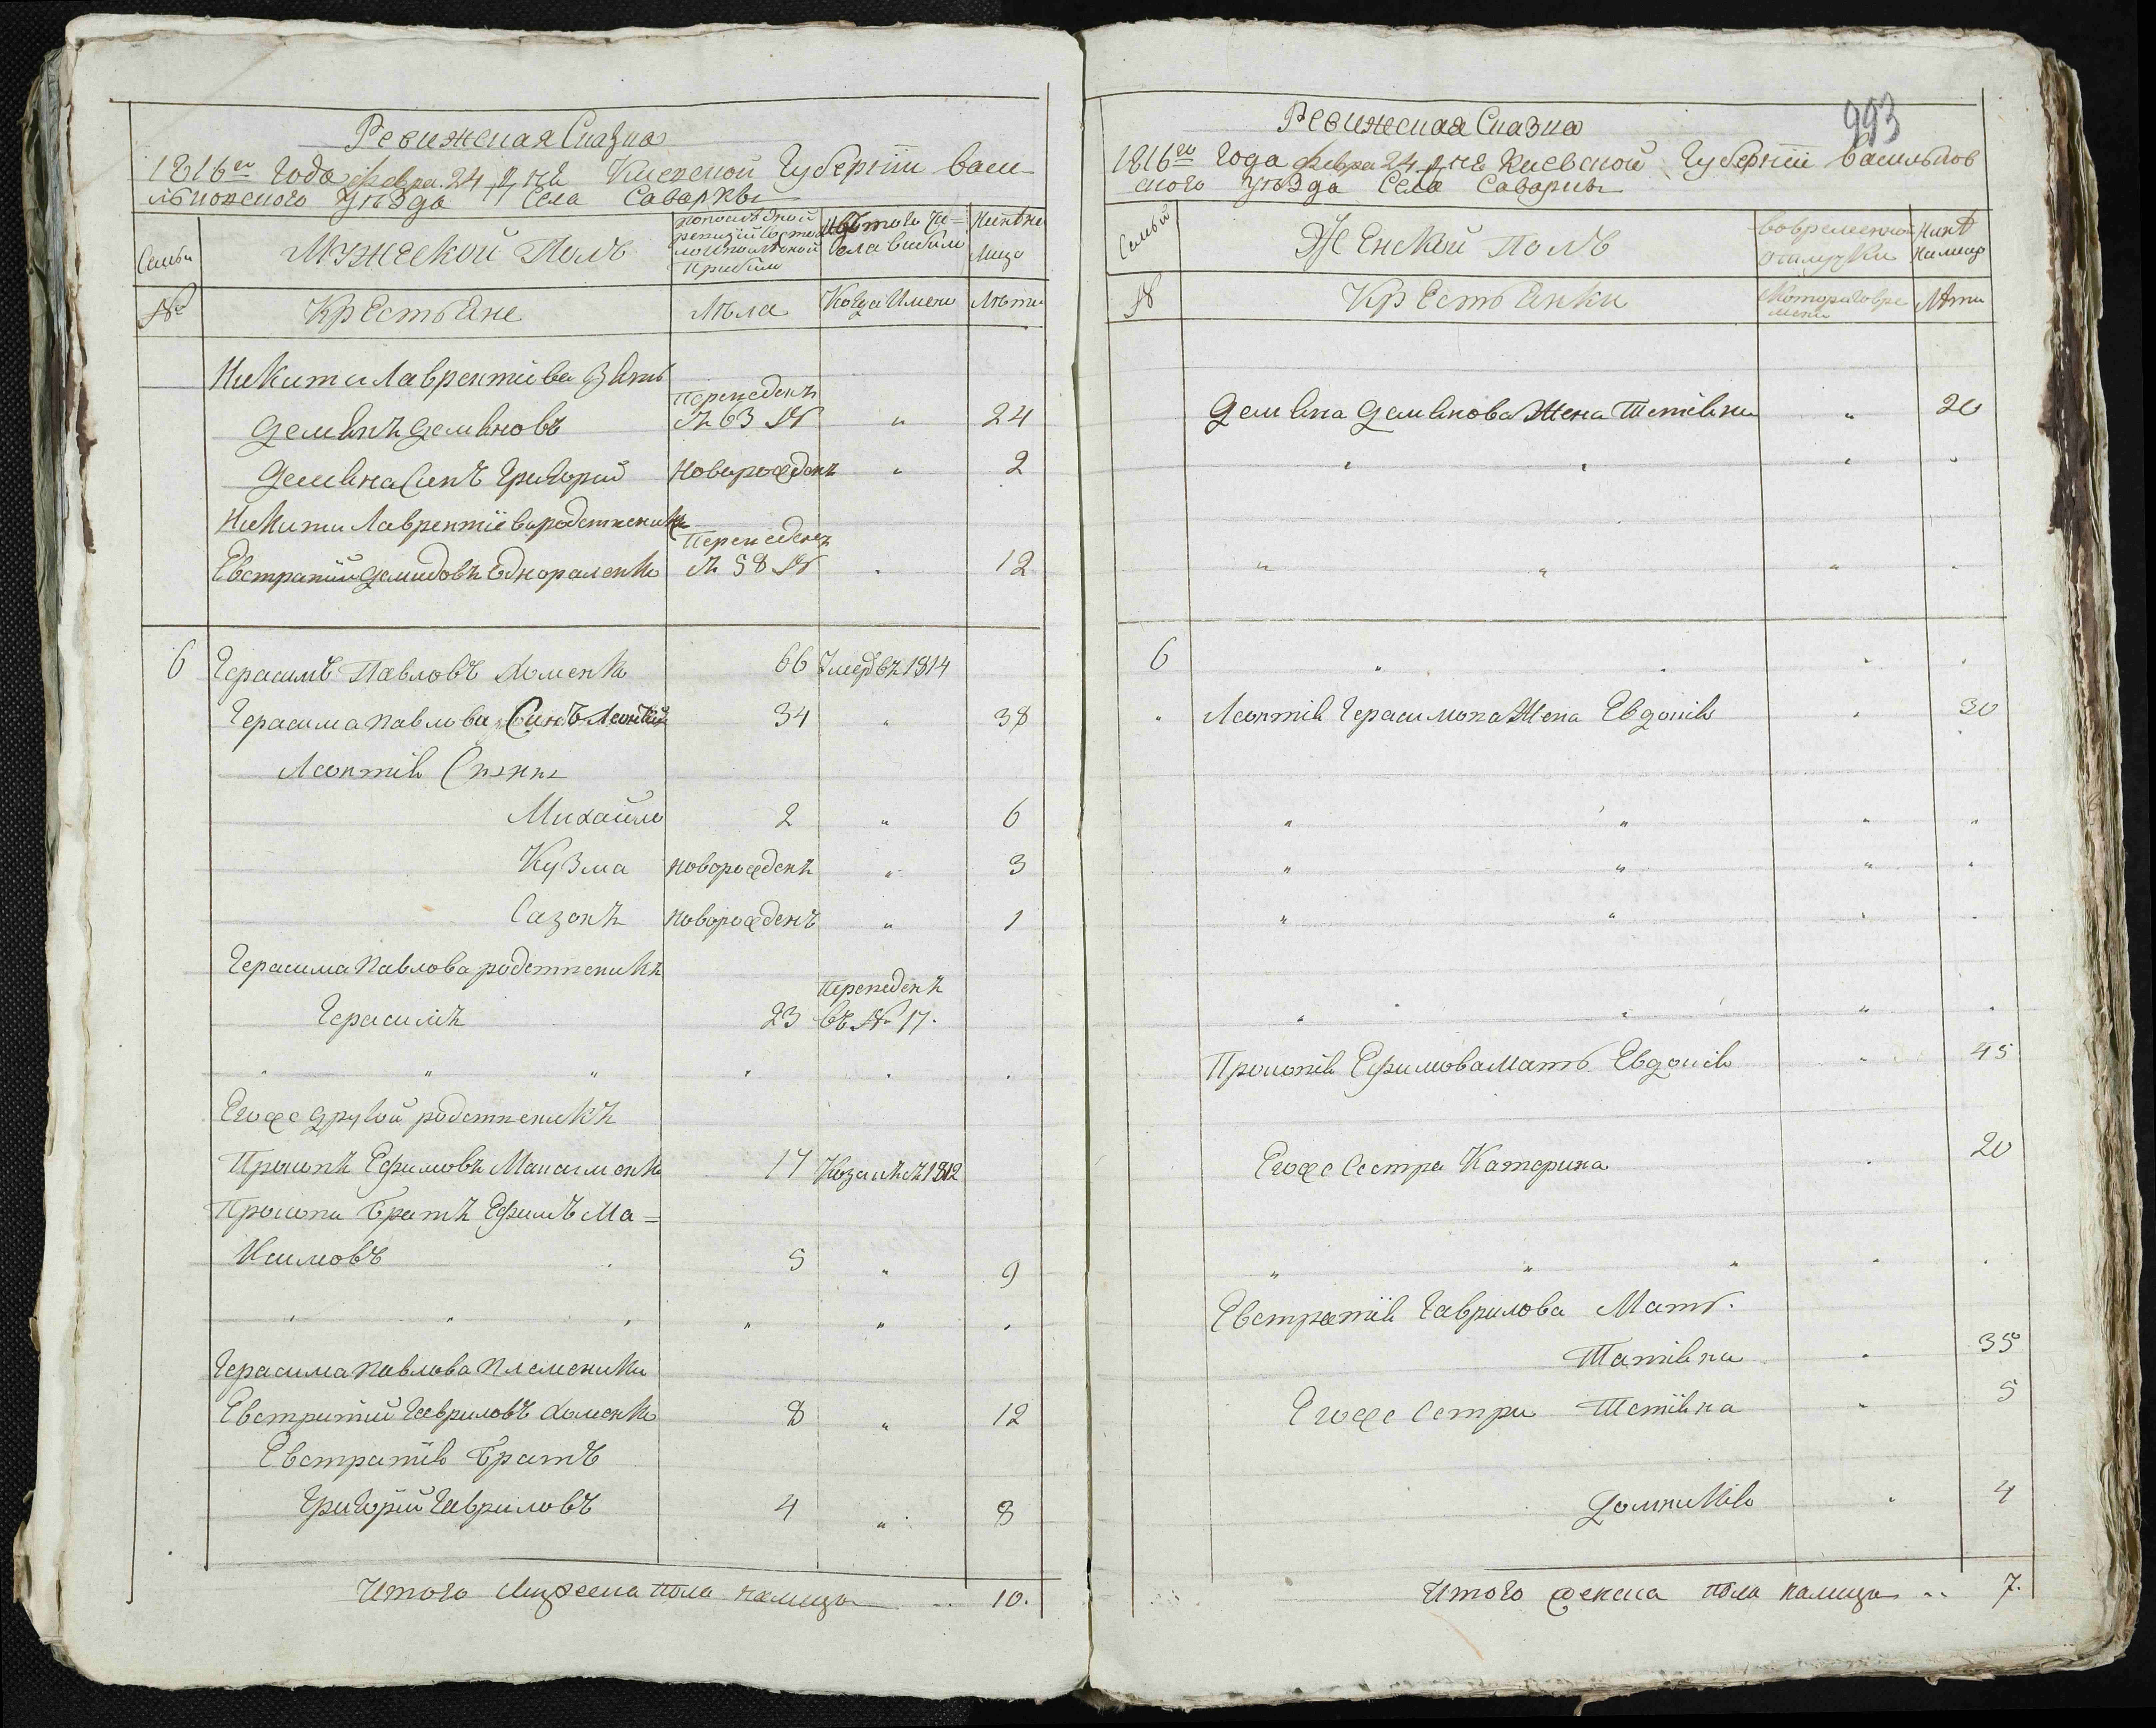 Ревижская Сказка
1816го Года Февра. 24 дня Киевской Губернии Васи-
льковского уезда Села Саварки
Семьи
Мужеской Полъ
по последной ревизии состояло и после оной прибыло
Изъ того числа выбыло
Ныне на лицо
№
Крестьяне
Лета
Когда имено
Лета
Никити Лаврентиева Зять
Демянъ Демяновъ Переведенъ съ 63 № " 24
Демяна Синъ Григорий Новорожденъ " 2
Никити Лаврентиева родственикъ
Евстратий Демидовъ Еднораленко Переведенъ съ 58 № " 12
6 Герасимъ Павловъ Хоменко 66 Умеръ въ 1814
Герасима Павлова Синъ Леонтий 34 " 38
Леонтия Сини
Михайло 2 " 6
Кузма новорожденъ " 3
Сазонъ новорожденъ " 1
Герасима Павлова родственикъ
Герасимъ 23 Переведенъ въ № 17.
" " " " " "
Егоже другой родственикъ
Прокопъ Ефимовъ Максименко 17 1812
Прокопа Братъ Ефимъ Ма=
ксимовъ 5 " 9
" " " " " "
Герасима Павлова Племеники
Евстратий Гавриловъ Хоменко 8 " 12
Евстратия Братъ
Григорий Гавриловъ 4 " 8
Итого Мужеска пола налицо .. 10.
993
Ревижская Сказка
1816го Года Февра 24 дня Киевской Губернии Васильков
ского уезда Села Саварки
Семьи
Женской Полъ
Вовременной отлучки
Ныне налицо
№
Крестьянки
Которого времени
Лета
Демяна Демянова Жена Тетияна " 20
" " " "
" " " "
6 " " " "
" Леонтия Герасимова Жена Евдокия " 30
" " " "
" " " "
" " " "
" " " "
Прокопия Ефимова Мать Евдокия " 45
Егоже Сестра Катерина " 20
" " " " "
Евстратия Гаврилова Мать.
Татияна " 35
Егоже Сетри Тетияна " 5
Домникия " 4
Итого женска пола налицо .. 7.